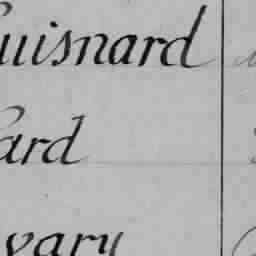 uisnard
ard
vary